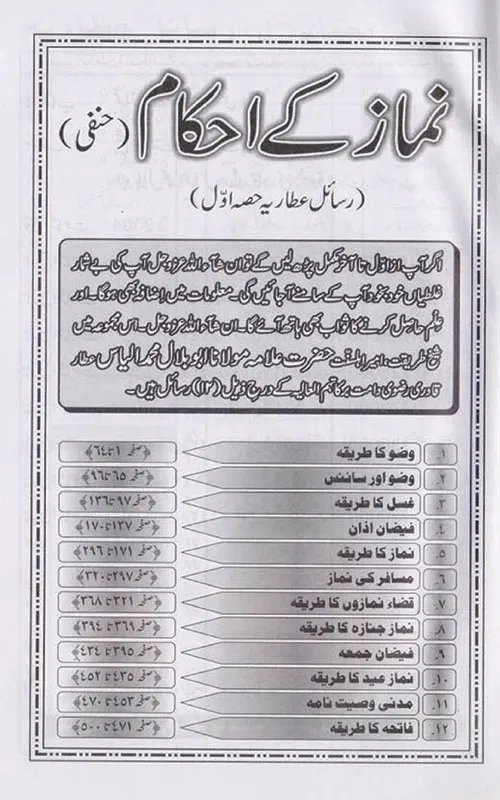 نماز کے احکام (حنفی)
(رسائل عطاریہ حصہ اوّل)
اگر آپ از اوّل تا آخر مکمل پڑھ لیں گے تو ان شآء اللہ عزوجل آپ کی بے شمار
غلطیاں خود بخود آپ کے سامنے آجائیں گی۔ معلومات میں اضافہ بھی ہوگا۔ اور
علم حاصل کرنے کا ثواب بھی ہاتھ آئے گا۔ ان شآء اللہ عزوجل۔ اس مجموعہ میں
شیخ طریقت، امیر اہلسنت حضرت علامہ مولانا ابو بلال محمد الیاس عطار
قادری رضوی دامت برکاتہم العالیہ کے درج ذیل (۱۲) رسائل ہیں۔
۱۔ وضو کا طریقہ ﴿صفحہ ۱ تا ۶۴﴾
۲۔ وضو اور سائنس ﴿صفحہ ۶۵ تا ۹۶﴾
۳۔ غسل کا طریقہ ﴿صفحہ ۹۷ تا ۱۳۶﴾
۴۔ فیضان اذان ﴿صفحہ ۱۳۷ تا ۱۷۰﴾
۵۔ نماز کا طریقہ ﴿صفحہ ۱۷۱ تا ۲۹۶﴾
۶۔ مسافر کی نماز ﴿صفحہ ۲۹۷ تا ۳۲۰﴾
۷۔ قضاء نمازوں کا طریقہ ﴿صفحہ ۳۲۱ تا ۳۶۸﴾
۸۔ نماز جنازہ کا طریقہ ﴿صفحہ ۳۶۹ تا ۳۹۴﴾
۹۔ فیضان جمعہ ﴿صفحہ ۳۹۵ تا ۴۳۴﴾
۱۰۔ نماز عید کا طریقہ ﴿صفحہ ۴۳۵ تا ۴۵۲﴾
۱۱۔ مدنی وصیت نامہ ﴿صفحہ ۴۵۳ تا ۴۷۰﴾
۱۲۔ فاتحہ کا طریقہ ﴿صفحہ ۴۷۱ تا ۵۰۰﴾